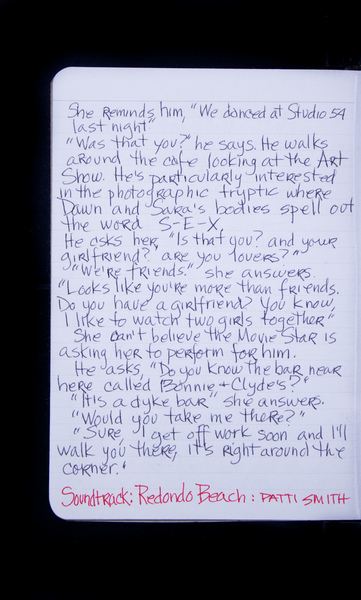 She Reminds him, "We danced at Studio 54
last night"
"Was that you?" he says. He walks
around the cafe looking at the Art
Show. He's particularly interested
in the photographic tryptic where
Dawn and Sara's bodies spell out
the word S-E-X.
He asks her, "Is that you? and your
girlfriend? are you lovers?"
"We're friends." she answers.
"Looks like you're more than friends.
Do you have a girlfriend? You know,
I like to watch two girls together"
She can't believe the Movie Star is
asking her to perform for him.
He asks, "Do you know the bar near
here called Bonnie + Clyde's?"
"It's a dyke bar" she answers.
"Would you take me there?"
"Sure, I get off work soon and I'll
walk you there, it's right around the
corner."
Soundtrack: Redondo Beach : PATTI SMITH